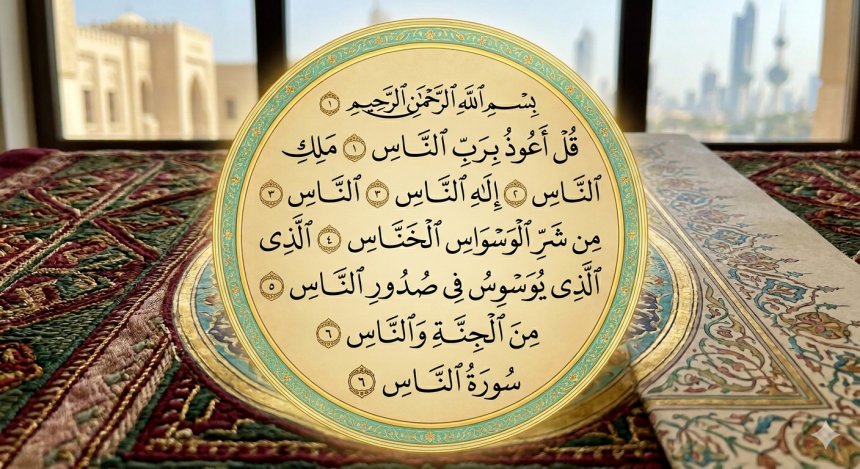 بِسْمِ ٱللَّهِ ٱلرَّحْمَٰنِ ٱلرَّحِيمِ ۝١
قُلْ أَعُوذُ بِرَبِّ ٱلنَّاسِ ۝١ مَلِكِ
ٱلنَّاسِ ۝٢ إِلَٰهِ ٱلنَّاسِ ۝٣ ٱلنَّاسِ ۝٣
مِن شَرِّ ٱلْوَسْوَاسِ ٱلْخَنَّاسِ ۝٤ ٱلَّذِى
ٱلَّذِى يُوَسْوِسُ فِى صُدُورِ ٱلنَّاسِ ۝٥
مِنَ ٱلْجِنَّةِ وَٱلنَّاسِ ۝٦
سُورَةُ ٱلنَّاسِ ۝٦